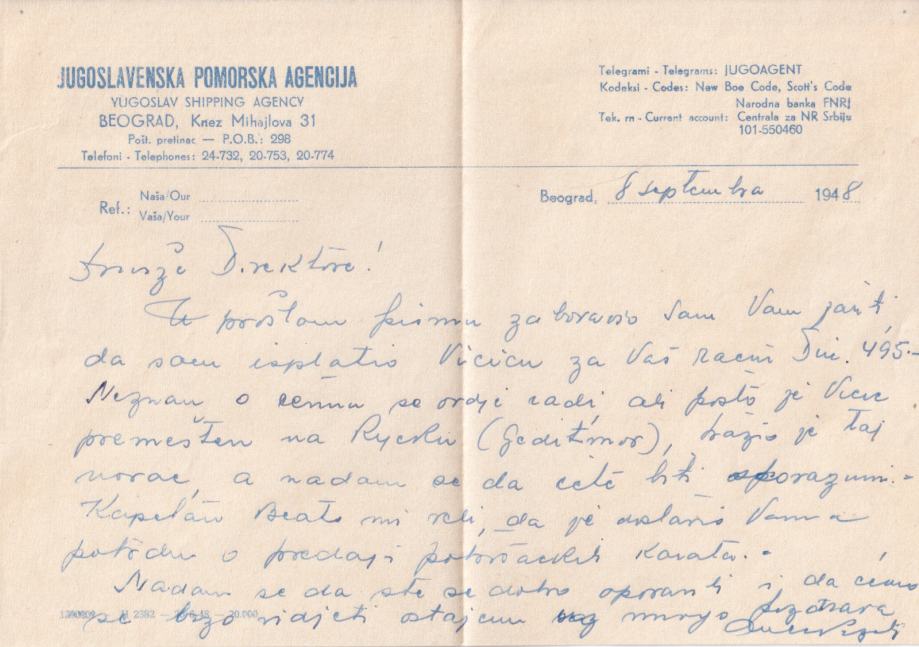 JUGOSLAVENSKA POMORSKA AGENCIJA
YUGOSLAV SHIPPING AGENCY
BEOGRAD, Knez Mihajlova 31
Pošt. pretinac — P.O.B.: 298
Telefoni - Telephones: 24-732, 20-753, 20-774
Telegrami - Telegrams: JUGOAGENT
Kodeksi - Codes: New Boe Code, Scott's Code
Narodna banka FNRJ
Tek. rn - Current account: Centrala za NR Srbiju
101-550460
Ref.: Naša/Our
Vaša/Your
Beograd, 8 septembra 1948
Druže Direktore!
U prošlom pismu zaboravio sam Vam javiti
da sam isplatio Viciću za Vaš račun Din. 495.-
Neznam o čemu se ovdje radi, ali pošto je Vicić
premešten na Rijeku (Jeditimor), tražio je taj
novac, a nadam se da ćete biti sporazumni.-
Kapetan Beato mi reli, da je dostavio Vama
potvrdu o predaji potrošačkih karata.-
Nadam se da ste se dobro oporavili i da ćemo
se brzo vidjeti ostajem uz mnogo pozdrava
2382 — 48 — 20.000